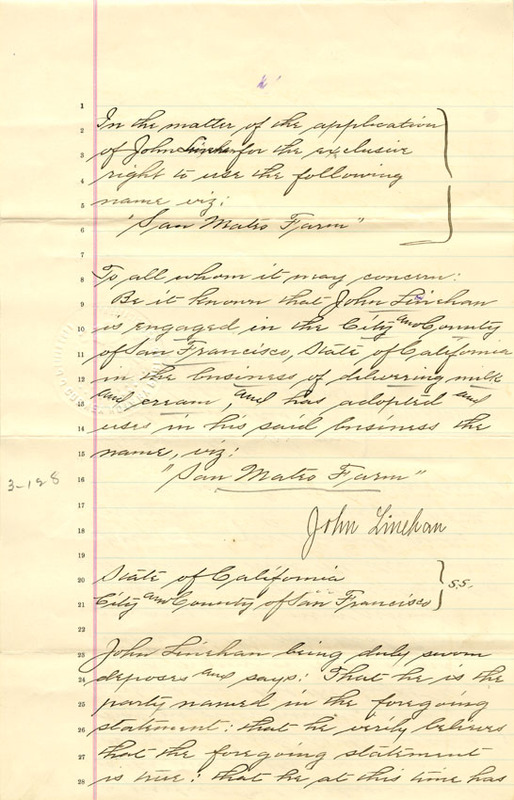 1
2 In the matter of the application
3 of John Linehan for the exclusive
4 right to use the following
5 name viz:
6 "San Mateo Farm"
7
8 To all whom it may concern:
9 Be it known that John Linehan
10 is engaged in the City and County
11 of San Francisco, State of California
12 in the business of delivering milk
13 and cream, and has adopted and
14 uses in his said business the
15 name, viz:
3-128
16 "San Mateo Farm"
17
18 John Linehan
19
20 State of California
21 City and County of San Francisco } S.S.
22
23 John Linehan being duly sworn
24 deposes and says: That he is the
25 party named in the foregoing
26 statement: that he verily believes
27 that the foregoing statement
28 is true: that he at this time has